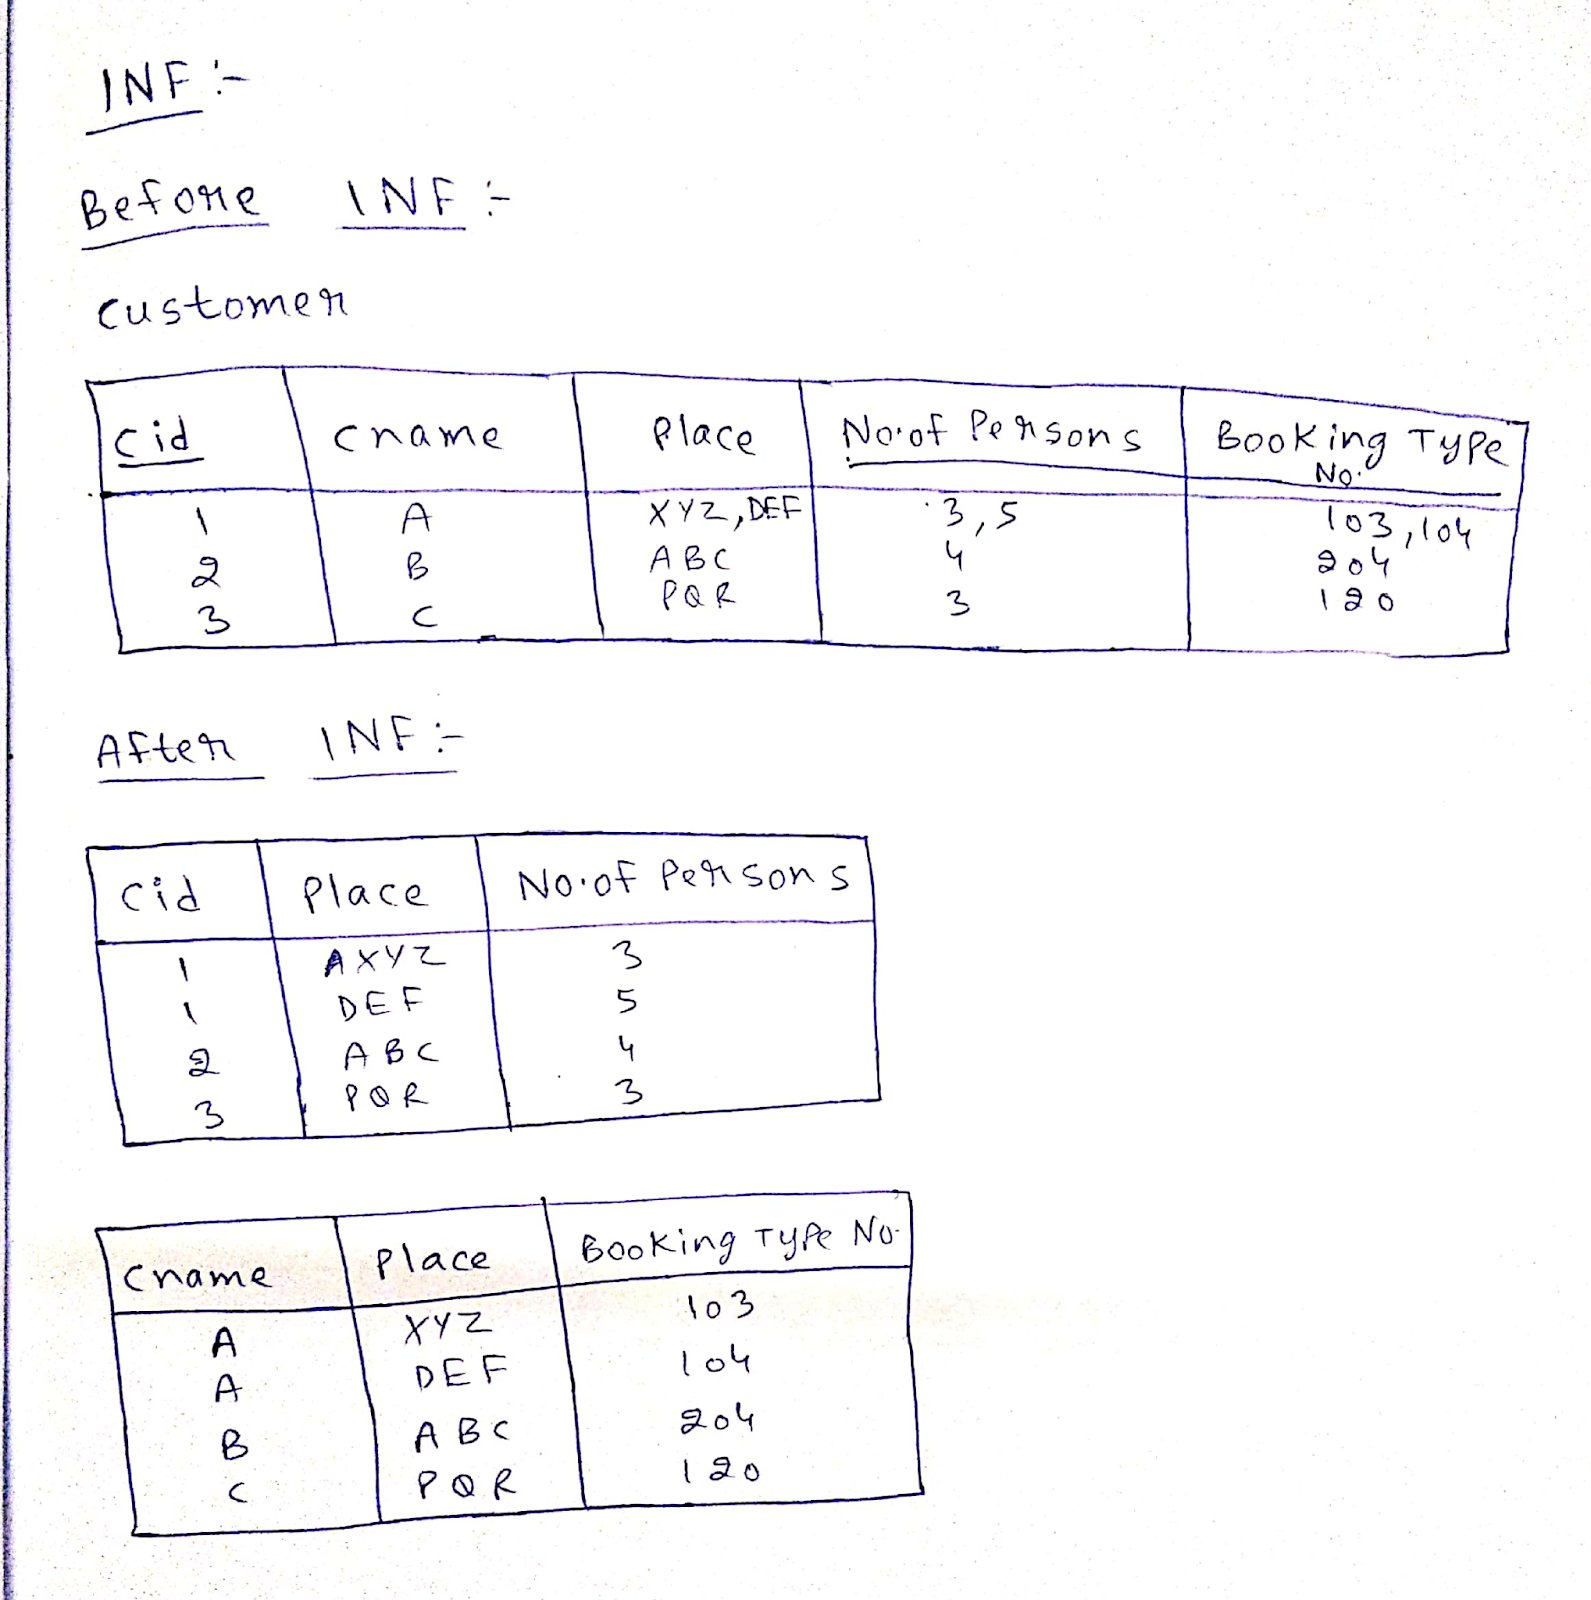 1NF :-
Before 1NF :-
Customer
Cid Cname Place No.of Persons Booking Type No.
1 A XYZ,DEF 3,5 103,104
2 B ABC 4 204
3 C PQR 3 120
After 1NF :-
Cid Place No.of Persons
1 AXYZ 3
1 DEF 5
2 ABC 4
3 PQR 3
Cname Place Booking Type No.
A XYZ 103
A DEF 104
B ABC 204
C PQR 120